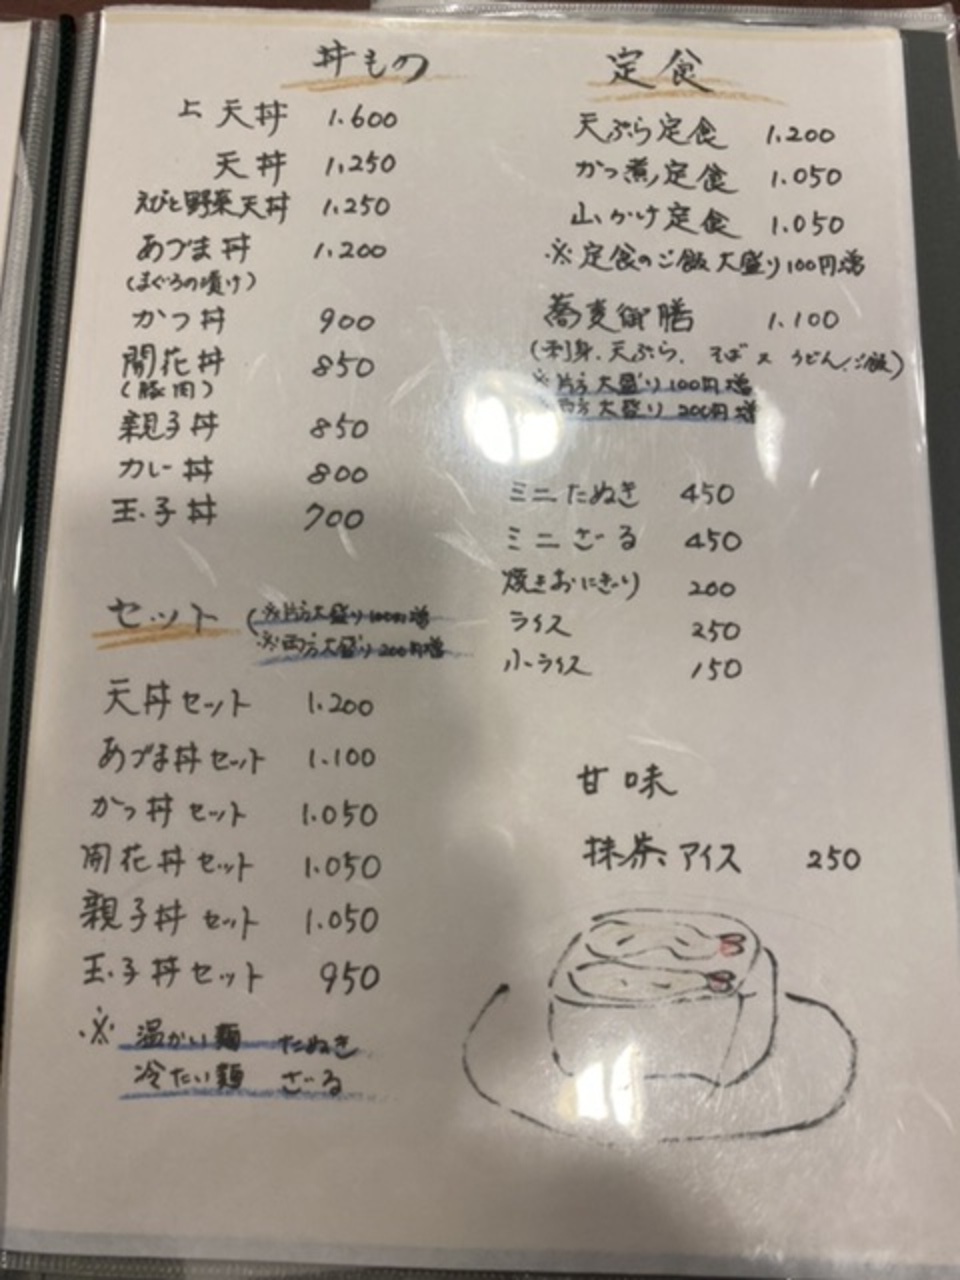 丼もの
上天丼 1.600
天丼 1.250
えびと野菜天丼 1.250
あづま丼 1.200
(まぐろの漬け)
かつ丼 900
開花丼 850
(豚肉)
親子丼 850
カレー丼 800
玉子丼 700
セット (※片方大盛り100円増
※両方大盛り200円増
天丼セット 1.200
あづま丼セット 1.100
かつ丼セット 1.050
開花丼セット 1.050
親子丼セット 1.050
玉子丼セット 950
※ 温かい麺 たぬき
冷たい麺 ざーる
定食
天ぷら定食 1.200
かつ煮定食 1.050
山かけ定食 1.050
※定食のご飯大盛り100円増
蕎麦御膳 1.100
(刺身、天ぷら、そば又うどん、ご飯)
※片方大盛り100円増
両方大盛り200円増
ミニたぬき 450
ミニざーる 450
焼きおにぎり 200
ライス 250
小ライス 150
甘味
抹茶アイス 250